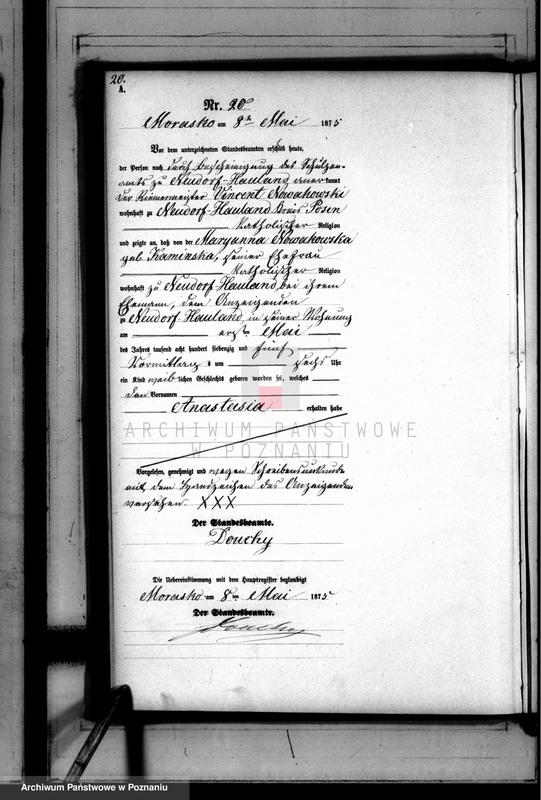 20.
A.
Nr. 20
Morasko am 8ten Mai 1875
Vor dem unterzeichneten Standesbeamten erschien heute,
der Person nach durch Bescheinigung des Schulzen-
amts zu Neudorf-Hauland anerkannt
der Riemermeister Vincent Nowakowski
wohnhaft zu Neudorf-Hauland Kreis Posen
katholischer Religion
und zeigte an, daß von der Maryanna Nowakowska
geb. Kaminska, seiner Ehefrau
katholischer Religion
wohnhaft zu Neudorf Hauland, bei ihrem
Ehemann, dem Anzeigenden
zu Neudorf-Hauland, in seiner Wohnung
am ersten Mai
des Jahres tausend acht hundert siebenzig und fünf
Vormittags um sechs Uhr
ein Kind weiblichen Geschlechts geboren worden sei, welches
den Vornamen
Anastasia erhalten habe
ARCHIWUM PAŃSTWOWE
W POZNANIU
Vorgelesen, genehmigt und wegen Schreibensunkunde
mit dem Handzeichen des Anzeigenden
versehen. XXX
Der Standesbeamte.
Douchy
Die Uebereinstimmung mit dem Hauptregister beglaubigt
Morasko am 8ten Mai 1875
Der Standesbeamte.
Douchy
Archiwum Państwowe w Poznaniu